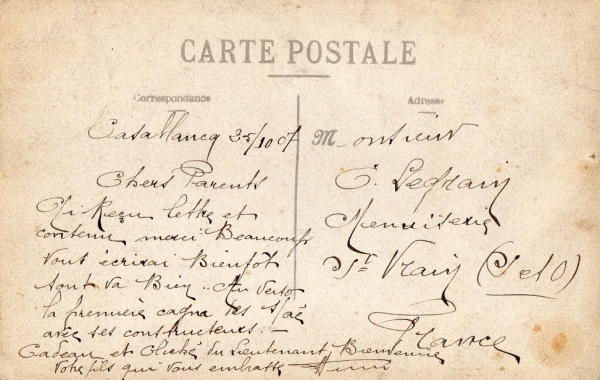 CARTE POSTALE
Correspondance
Adresse
Casablanca 25/10 07
Chers Parents
J'ai Reçu lettre et
contenu merci Beaucoup
Vous écrirai Bientôt
tout va Bien .. Au verso
la première cagna des
avec ses constructeurs. –
Cadeau et Cliché du Lieutenant Bienvenue
Votre fils qui vous embrasse Henri
Monsieur
E. Legrain
Menuiserie
St Vrain (S et O)
France